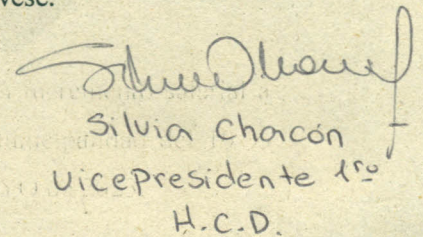 vese.
Silvia Chacón
Vicepresidente 1ro
H.C.D.